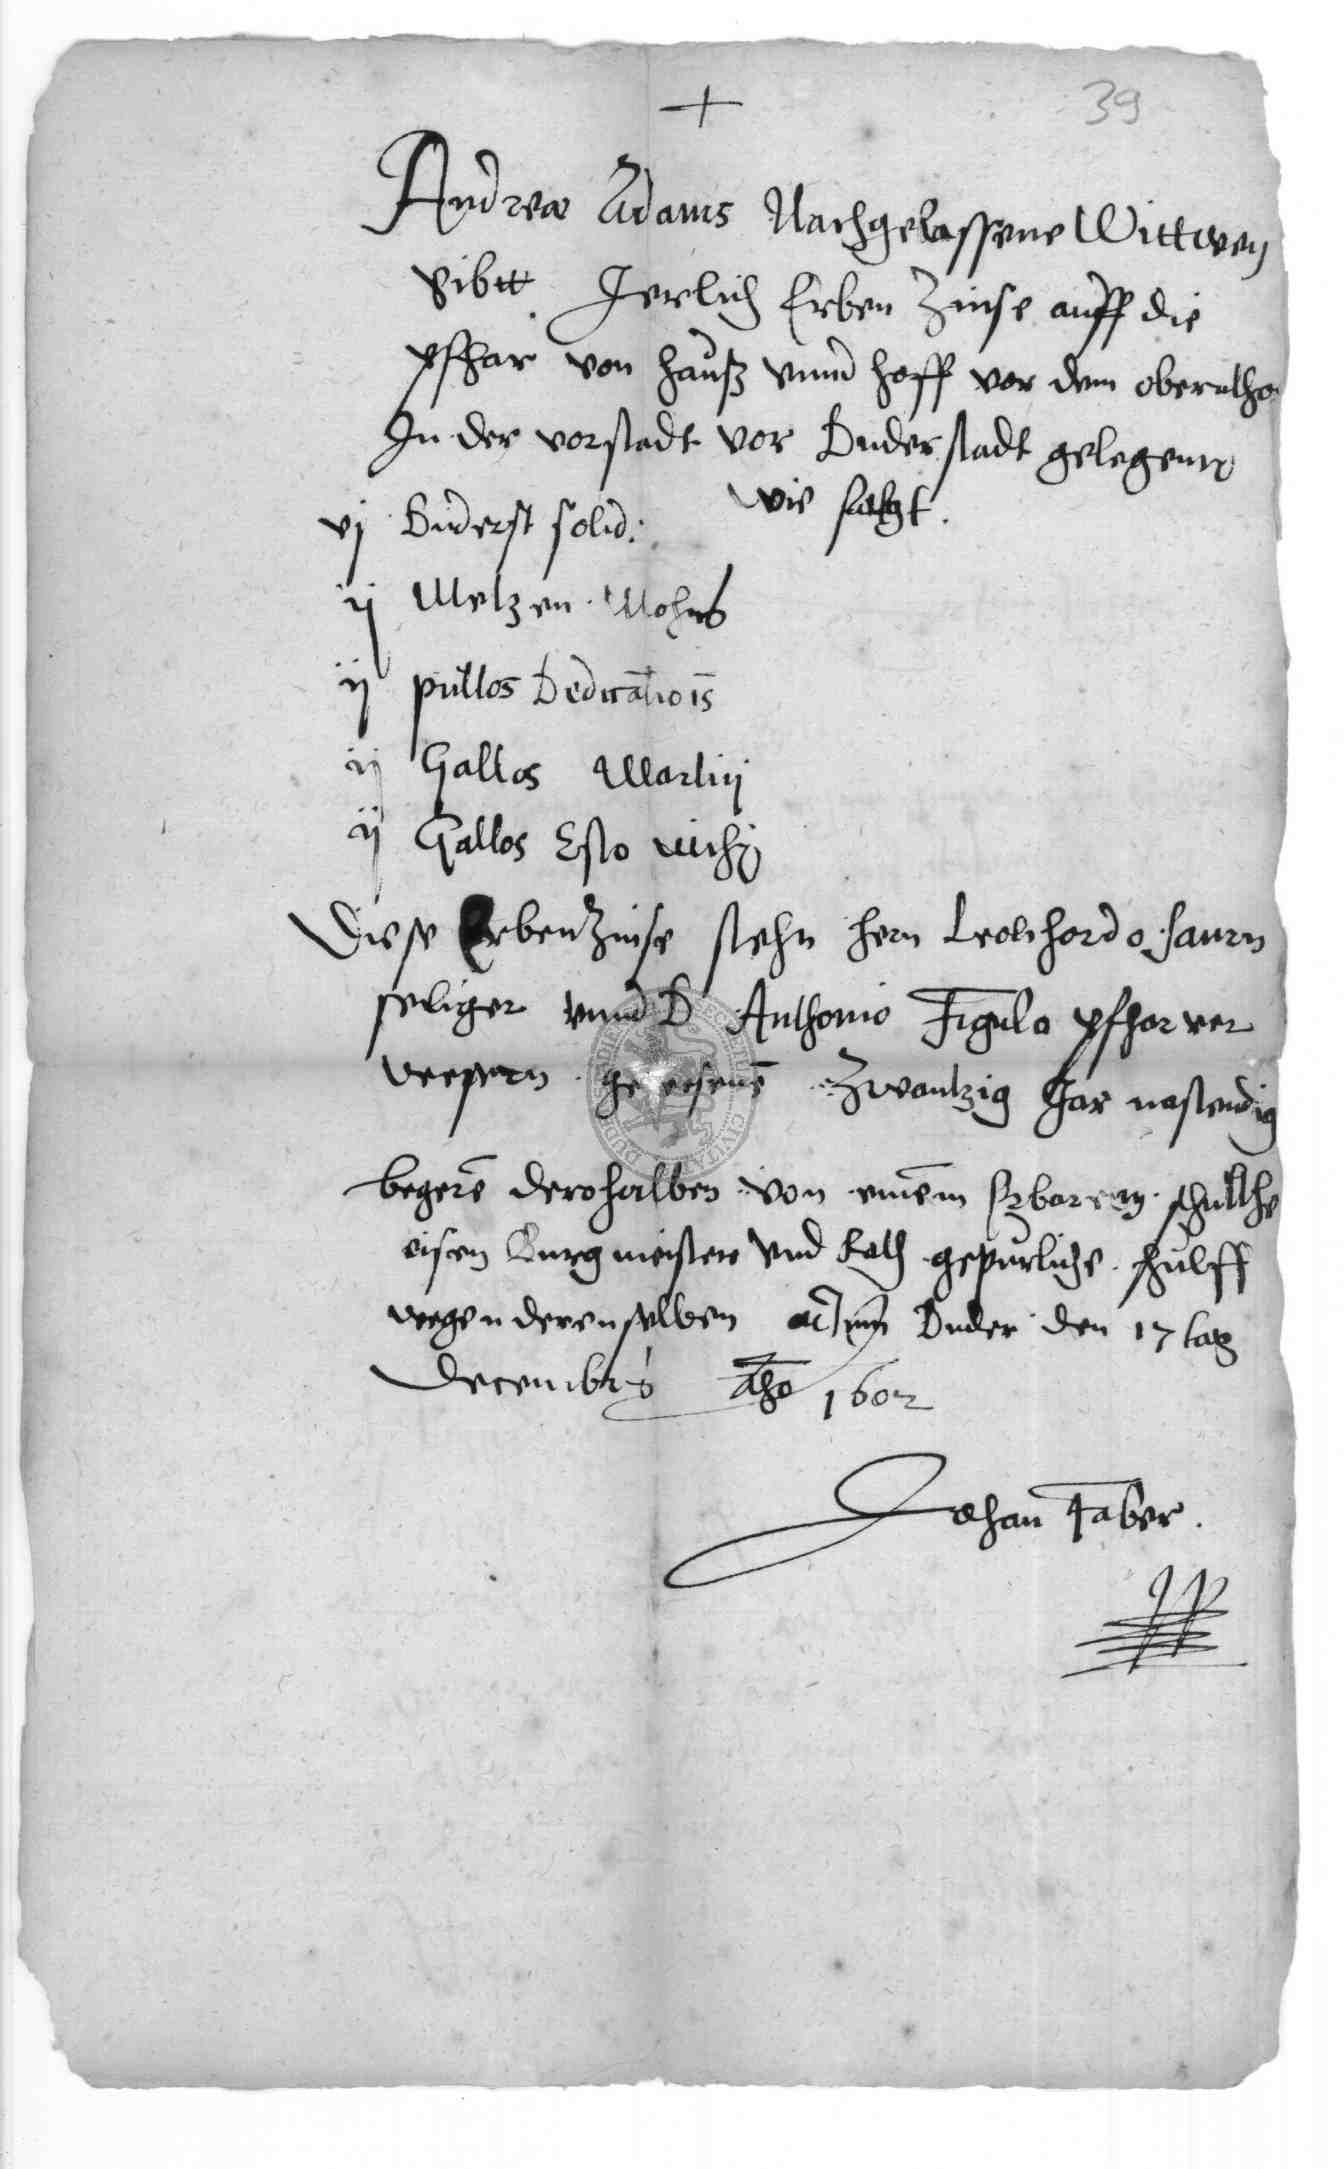 +
39
Andreæ Adams Nachgelassene Wittwen
Gibtt Jerlich Erben Zinse auff die
pfhar von hauß vnnd hoff vor dem oberntho
In der vorstadt vor Duderstadt gelegenn
wie folgt.
vj Duderst solid:
ij Metzen Mohns
ij pullos Dedicatiois
ij Gallos Martinj
ij Gallos Esto michi
Diese Erbenzinse stehn hern Leonhardo
seliger vnnd D Anthonio Figulo pfhor ver
wesern gewesene Zwantzig Jar nastendig
begere derohalben von einem Erbaren schulthe
eisen Burgmeistere vnd Rath gepurliche hulff
wegen derenselben Actum Duder den 17 tag
Decembris Aho 1602
Johan Faber.